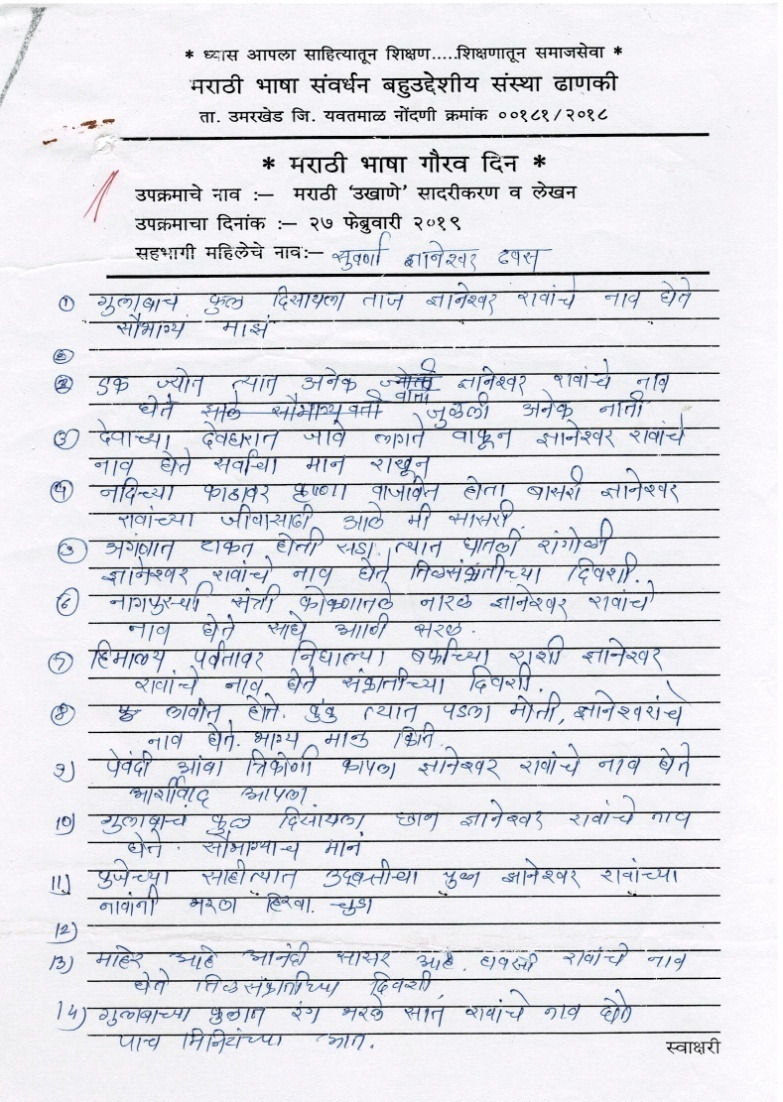 * ध्यास आपला साहित्यातून शिक्षण.....शिक्षणातून समाजसेवा *
मराठी भाषा संवर्धन बहुउद्देशीय संस्था ढाणकी
ता. उमरखेड जि. यवतमाळ नोंदणी क्रमांक ००१८१/२०१८
* मराठी भाषा गौरव दिन *
उपक्रमाचे नाव :– मराठी ‘उखाणे’ सादरीकरण व लेखन
उपक्रमाचा दिनांक :– २७ फेब्रुवारी २०१९
सहभागी महिलेचे नाव:– सुवर्णा ज्ञानेश्वर
① गुलाबाचं फुल दिसायला ताजं ज्ञानेश्वर रावांचे नाव घेते
सौभाग्यं माझं
② एक ज्योत त्यात अनेक वाती ज्ञानेश्वर रावांचे नाव
घेते जुळली अनेक नाती
③ देवाच्या देवघरात जावे लागते वाकून ज्ञानेश्वर रावांचे
नाव घेते सर्वांचा मान राखून
④ नदिच्या काठावर कृष्णा वाजवित होता बासरी ज्ञानेश्वर
रावांच्या जीवासाठी आले मी सासरी.
⑤ अंगणात टाकत होती सडा त्यात घातली रांगोळी
ज्ञानेश्वर रावांचे नाव घेते तिळसंक्रांतीच्या दिवशी.
⑥ नागपुरची संत्री कोकणातले नारळ ज्ञानेश्वर रावांचे
नाव घेते साधे आणी सरळ.
⑦ हिमालय पर्वतावर निघाल्या बर्फाच्या राशी ज्ञानेश्वर
रावांचे नाव घेते संक्रांतीच्या दिवशी.
⑧ लावीत होते. कुंकु त्यात पडला मोती, ज्ञानेश्वरांचे
नाव घेते. भाग्य मानु किती.
9) पेवंदी आंबा त्रिकोणी कापला ज्ञानेश्वर रावांचे नाव घेते
आर्शीवाद आपला
10) गुलाबाचं फुल दिसायला छान ज्ञानेश्वर रावांचे नाव
घेते. सौभाग्याचं मानं
11) पुजेच्या साहीत्यात उदबत्तीचा पुडा ज्ञानेश्वर रावांच्या
नावांनी भरला हिरवा. चुडा
12)
13) माहेर आहे आनंदी सासर आहे. रावांचे नाव
घेते तिळसंक्रातीच्या दिवशी
14) गुलाबाच्या फुलात रंग भरले सात रावांचे नाव घेते
पाच मिनिटांच्या आत.
स्वाक्षरी